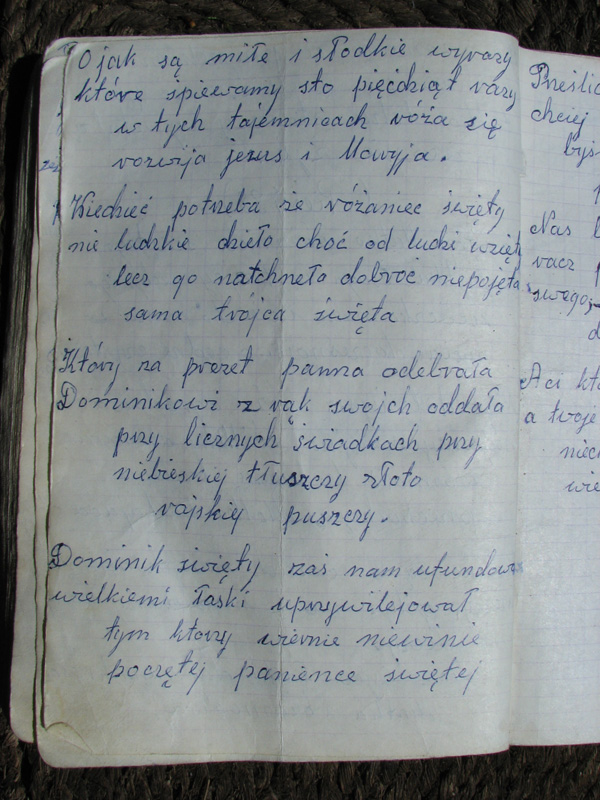 O jak są miłe i słodkie wyrazy
które śpiewamy sto pięćdziąt razy
w tych tajemnicach róża się
rozwija jezus i Maryja.
Wiedzieć potrzeba że różaniec święty
nie ludzkie dzieło choć od ludzi wzięty
lecz go natchneła dobroć niepojęta
sama trójca święta
Który na przet panna odebrała
Dominikowi z rąk swojch oddała
przy licznych świadkach przy
niebieskiej tłuszczy złoto
rajskiej puszczy.
Dominik święty zaś nam ufundował
wielkiemi łaski uprzywilejował
tym ktorzy wiernie niewinie
poczętej panience świętej
Prześlic
chciej
byś
Nas
racz
swego,
A ci któ
a twoje
niech
wie